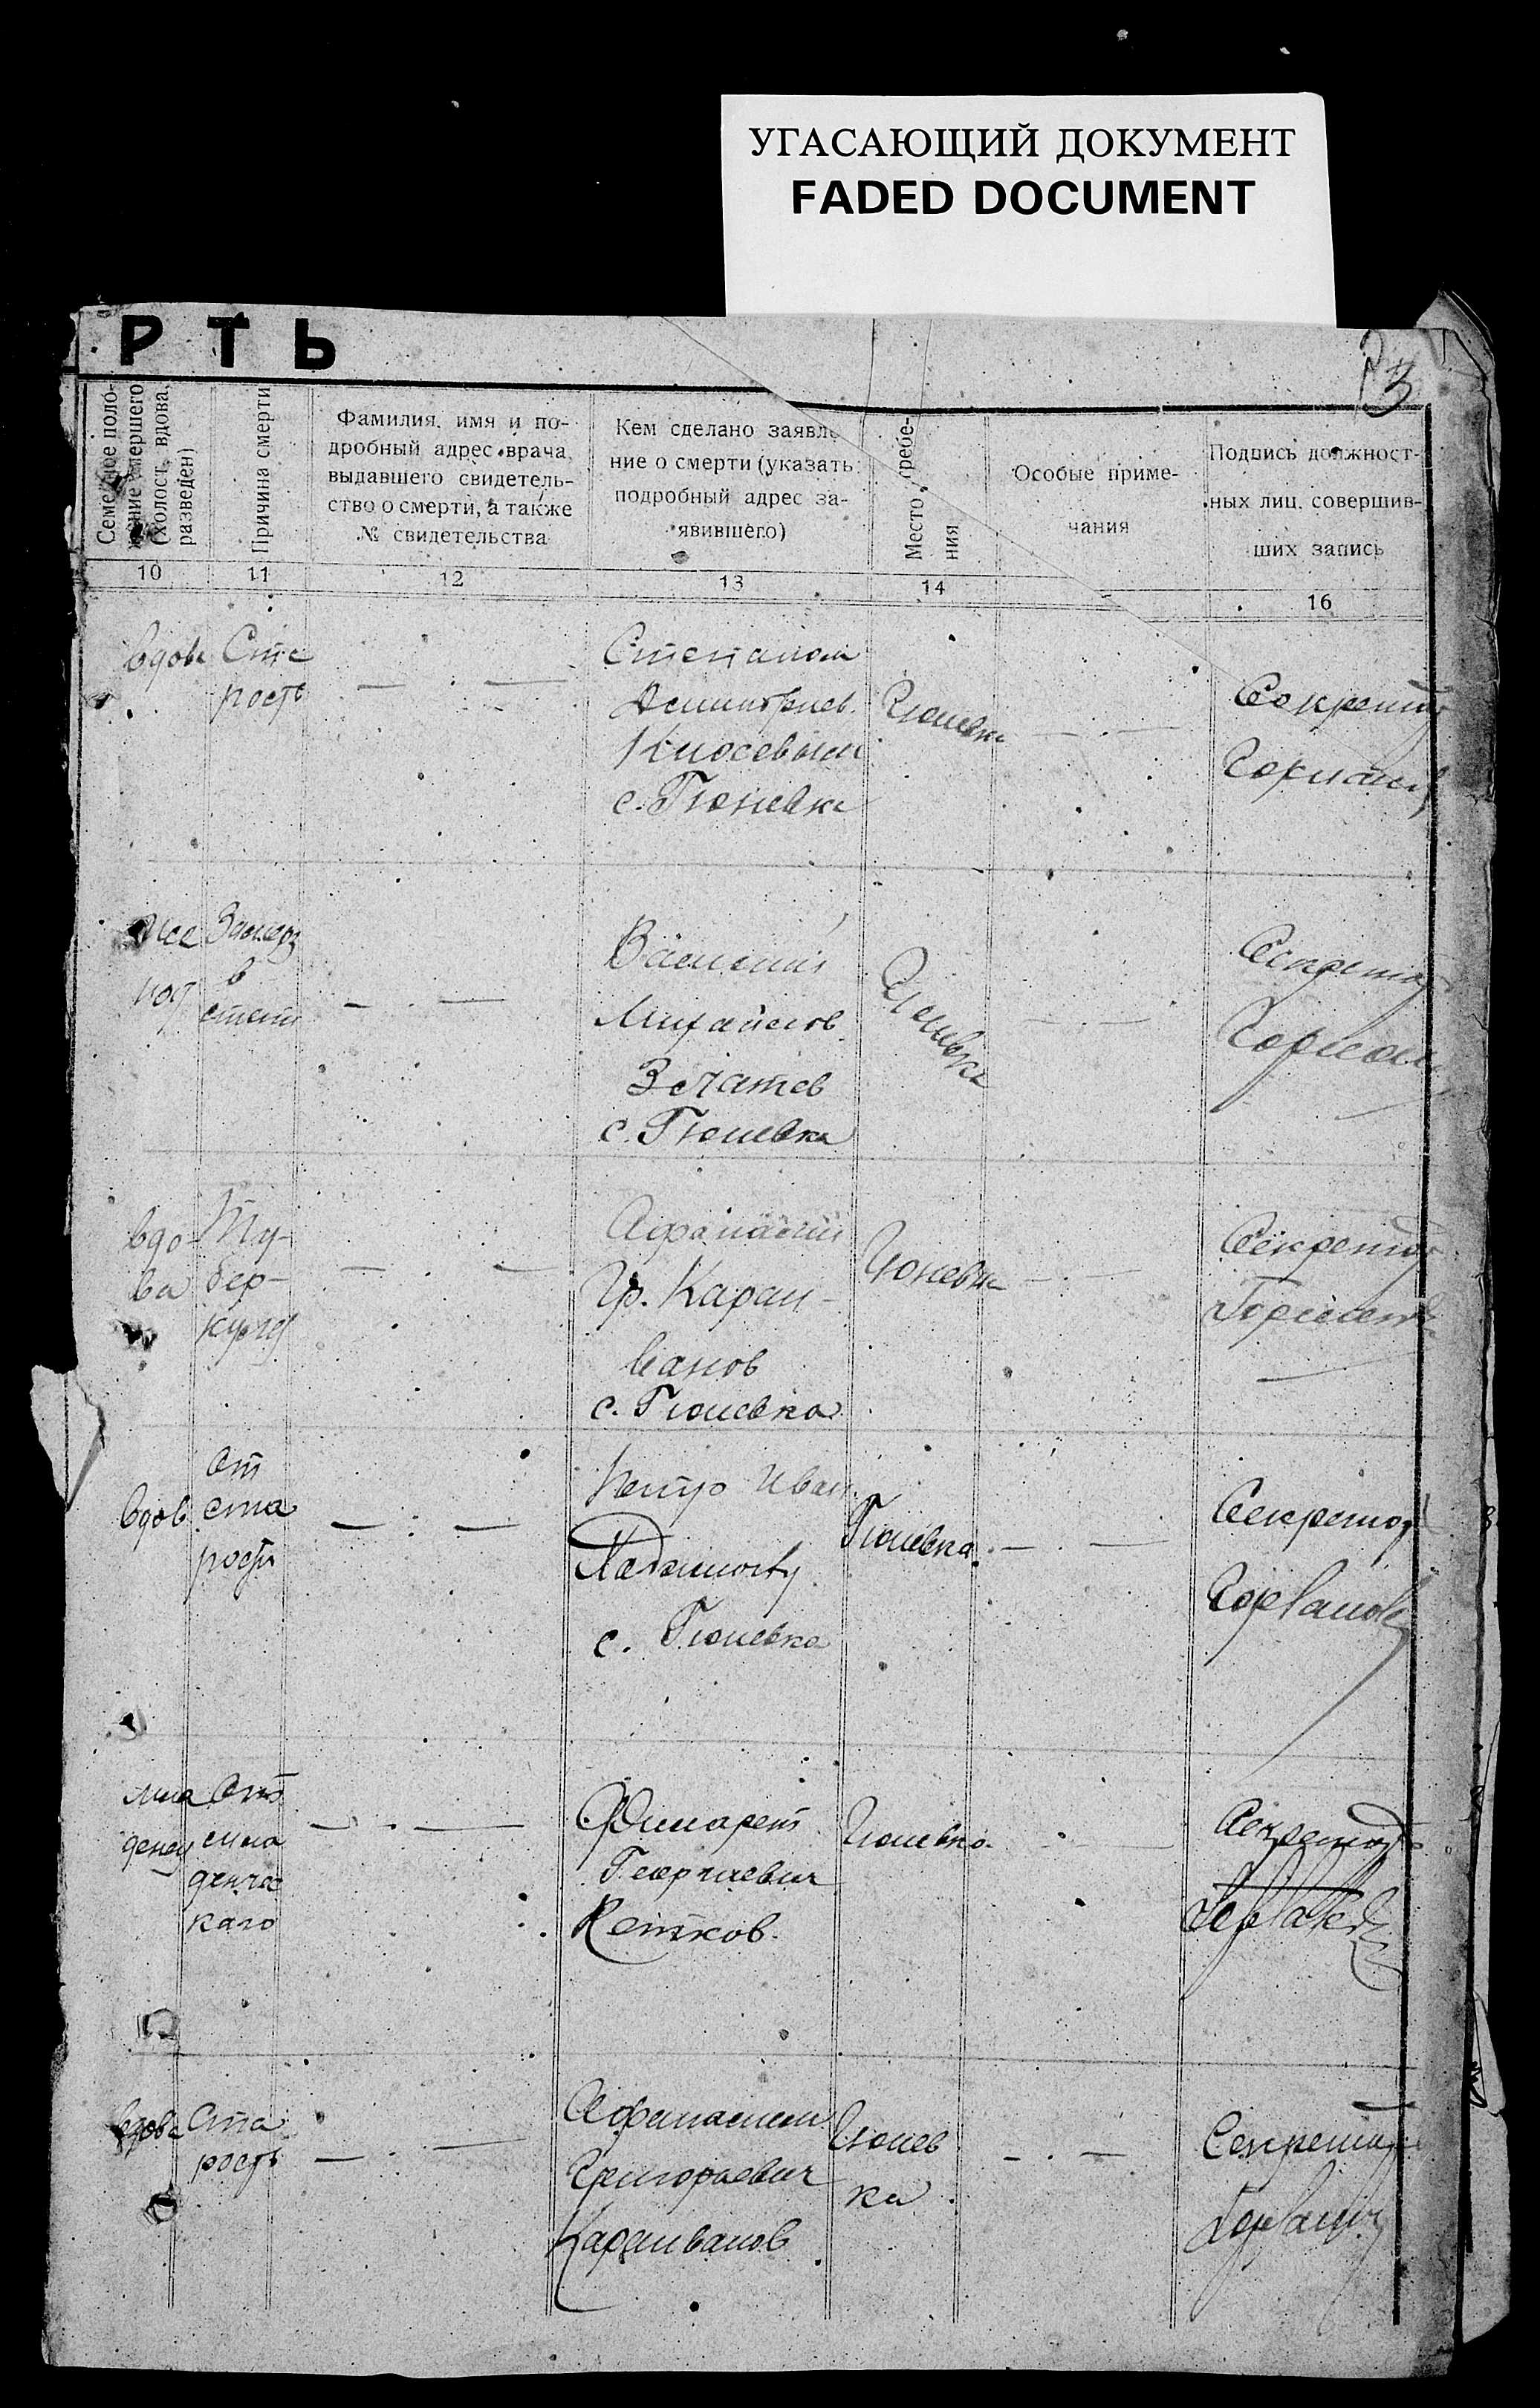 УГАСАЮЩИЙ ДОКУМЕНТ
FADED DOCUMENT
РТЬ
3
Семейное поло-
жение умершего
(холост, вдова,
разведен)
Причина смерти
Фамилия, имя и по-
дробный адрес врача,
выдавшего свидетель-
ство о смерти, а также
№ свидетельства
Кем сделано заявле
ние о смерти (указать
подробный адрес за-
явившего)
Место гребе-
ния
Особые приме-
чания
Подпись должност-
ных лиц, совершив-
ших запись
10
11
12
13
14
16
вдова
Ста
рость
Степаном
Дмитриев.
Киосевым
с. Гюневка
Гюневка
Секретар
же
под
Замерз
в
степи
Василий
Михайлов
Златев
с. Гюневка
Гюневка
Секретар
вдо-
ва
Ту-
бер-
кулез
Афанасий
Гр. Караи-
ванов
с. Гюневка
Гюневка
Секретар
вдов
от
ста
рость
Петр Иван
с. Гюневка
Гюневка
Секретар
мла
денец
от
мла
денчес
каго
Филарет
Георгиевич
Кетков.
Гюневка
Секретарь
вдова
Ста
рость
Афанасием
Григорьевич
Караиванов
Гюнев
ка
Секретарь